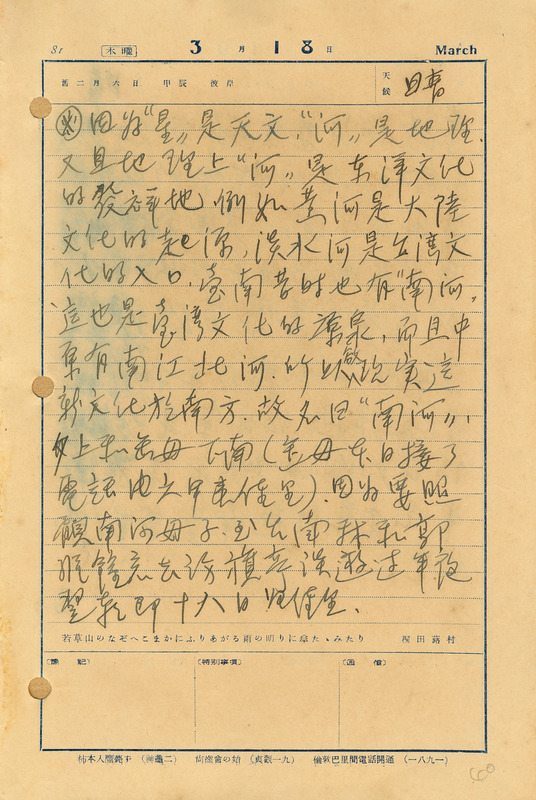 81 木曜 3月18日 March
舊二月六日 甲辰 彼岸 天候 日春
因為“星”是天文，“河”是地理.
又且地理上“河”是東洋文化
的發祥地 例如 黃河是大陸
文化的起源，淡水河是台湾文
化的入口，臺南昔時也有“南河”
這也是臺湾文化的源泉，而且中
有南江北河.所以
新文化於南方.故名曰“南河”，
上和岳母下南（岳母本日接了
電話由六甲來佳里）.因為要照
顧南河母子.至台南林和鄭
年後
翌朝即十八日归佳里.
若草山のなぞへこまかにふりあがる雨の明りに傘たゝみたり 岡田蕗村
〔雜記〕 〔特別事項〕 〔通信〕
柿本人麿歿す （神龜二） 尚齒會の始 （貞觀一九） 倫敦巴里間電話開通 （一八九一）